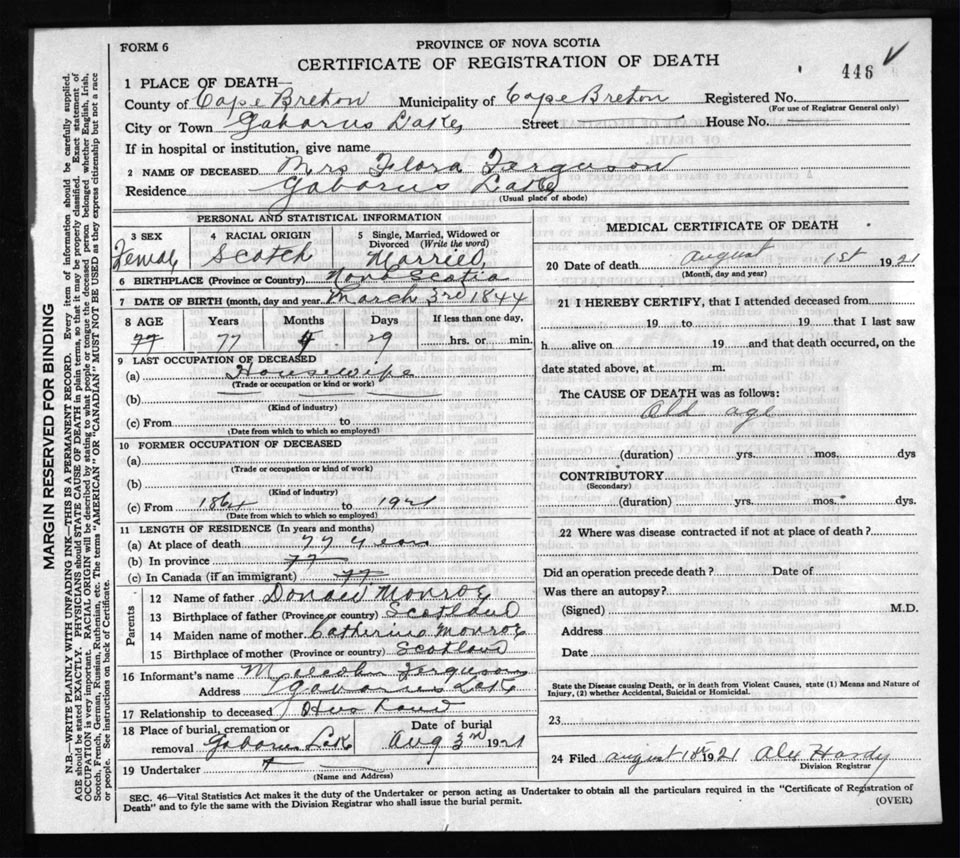 FORM 6
PROVINCE OF NOVA SCOTIA
CERTIFICATE OF REGISTRATION OF DEATH
448
1 PLACE OF DEATH—
County of Cape Breton Municipality of Cape Breton Registered No.
(For use of Registrar General only)
City or Town Gabarus Lake Street House No.
If in hospital or institution, give name
2 NAME OF DECEASED Mrs Flora Ferguson
Residence Gabarus Lake
(Usual place of abode)
PERSONAL AND STATISTICAL INFORMATION
3 SEX
Female
4 RACIAL ORIGIN
Scotch
5 Single, Married, Widowed or
Divorced (Write the word)
Married
6 BIRTHPLACE (Province or Country) Nova Scotia
7 DATE OF BIRTH (month, day and year) March 3rd 1844
8 AGE Years Months Days If less than one day,
77 77 4 29 hrs. or min.
9 LAST OCCUPATION OF DECEASED
(a) Housewife
(Trade or occupation or kind or work)
(b)
(Kind of industry)
(c) From to
(Date from which to which so employed)
10 FORMER OCCUPATION OF DECEASED
(a)
(Trade or occupation or kind of work)
(b)
(Kind of industry)
(c) From 1864 to 1921
(Date from which to which so employed)
11 LENGTH OF RESIDENCE (In years and months)
(a) At place of death 77 years
(b) In province 77
(c) In Canada (if an immigrant) 77
Parents
12 Name of father Donald Monroe
13 Birthplace of father (Province or country) Scotland
14 Maiden name of mother Catherine Monroe
15 Birthplace of mother (Province or country) Scotland
16 Informant's name Malcolm Ferguson
Address Gabarus Lake
17 Relationship to deceased Husband
18 Place of burial, cremation or
removal Gabarus Lake
Date of burial
Aug 3rd 1921
19 Undertaker
(Name and Address)
MEDICAL CERTIFICATE OF DEATH
20 Date of death August 1st 1921
(Month, day and year)
21 I HEREBY CERTIFY, that I attended deceased from
19 to 19 that I last saw
h alive on 19 and that death occurred, on the
date stated above, at m.
The CAUSE OF DEATH was as follows:
Old age
(duration) yrs. mos. dys
CONTRIBUTORY
(Secondary)
(duration) yrs. mos. dys.
22 Where was disease contracted if not at place of death?
Did an operation precede death? Date of
Was there an autopsy?
(Signed) M.D.
Address
Date
State the Disease causing Death, or in death from Violent Causes, state (1) Means and Nature of
Injury, (2) whether Accidental, Suicidal or Homicidal.
23
24 Filed August 1921 Alex Hardy
Division Registrar
SEC. 46—Vital Statistics Act makes it the duty of the Undertaker or person acting as Undertaker to obtain all the particulars required in the "Certificate of Registration of
Death" and to fyle the same with the Division Registrar who shall issue the burial permit.
(OVER)
MARGIN RESERVED FOR BINDING
N.B.—WRITE PLAINLY WITH UNFADING INK—THIS IS A PERMANENT RECORD. Every item of information should be carefully supplied.
AGE should be stated EXACTLY. PHYSICIANS should STATE CAUSE OF DEATH in plain terms, so that it may be properly classified. Exact statement of
OCCUPATION is very important. RACIAL ORIGIN will be described by stating to what people or tongue the deceased person belonged whether English, Irish,
Scotch, French, German, Russian, Ruthenian, etc. The terms "AMERICAN" OR "CANADIAN" MUST NOT BE USED as they express citizenship but not a race
or people. See instructions on back of Certificate.